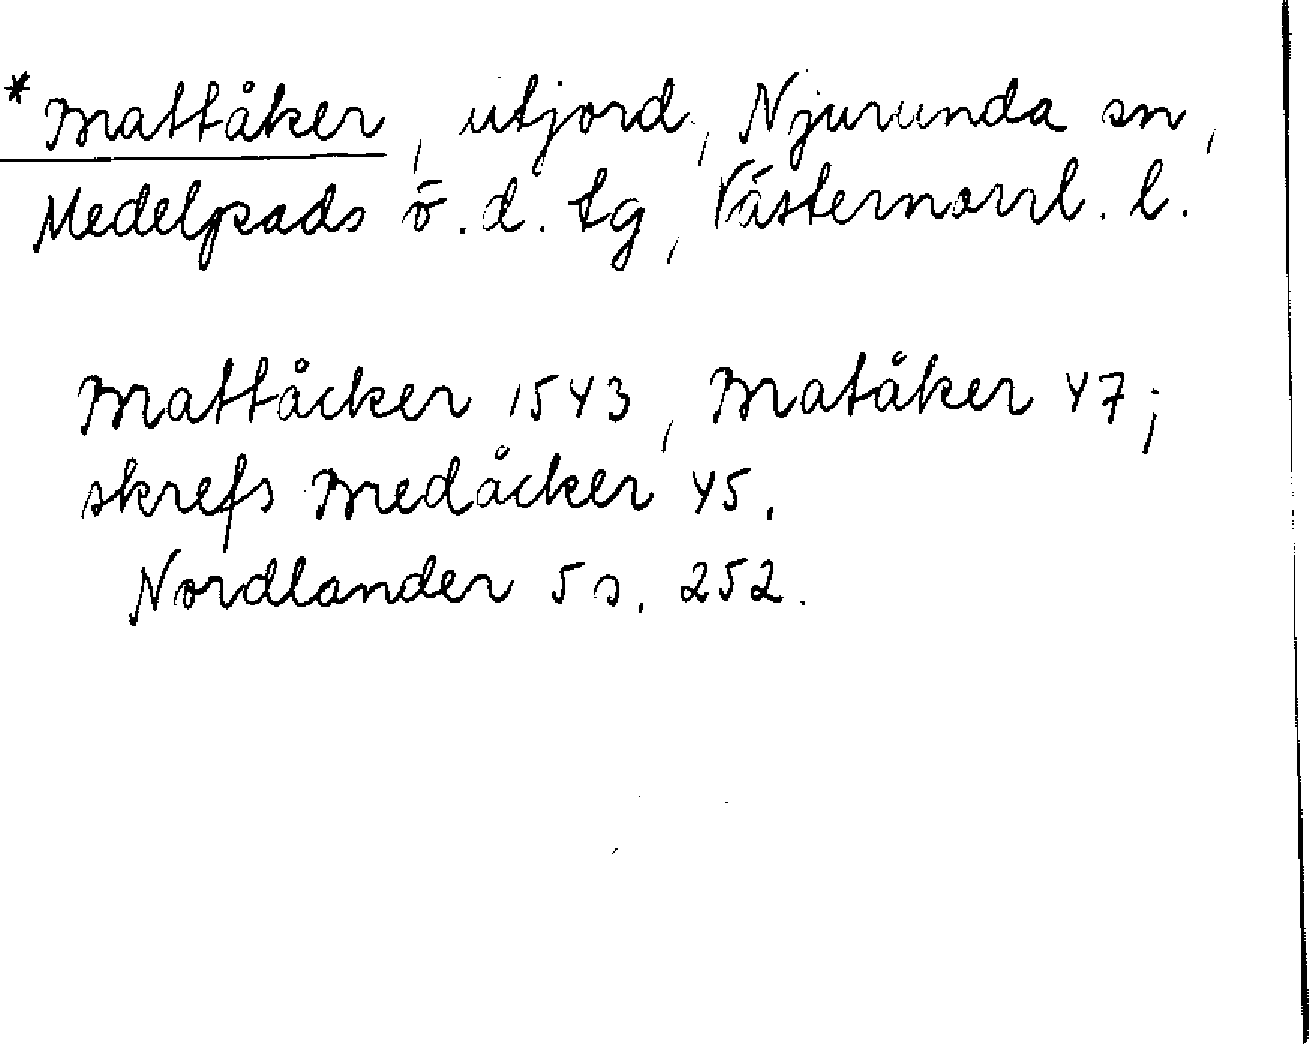 *Mattåker, utjord, Njurunda sn,
Medelpads ö.d. tg, Västernorrl. l.
Mattåcker 1543, Matåker 47;
skrefs Medåcker 45.
Nordlander 5 s. 252.